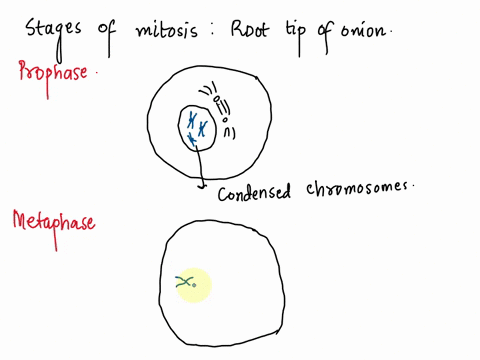 Stages of mitosis : Root tip of onion.
Prophase.
Condensed chromosomes.
Metaphase